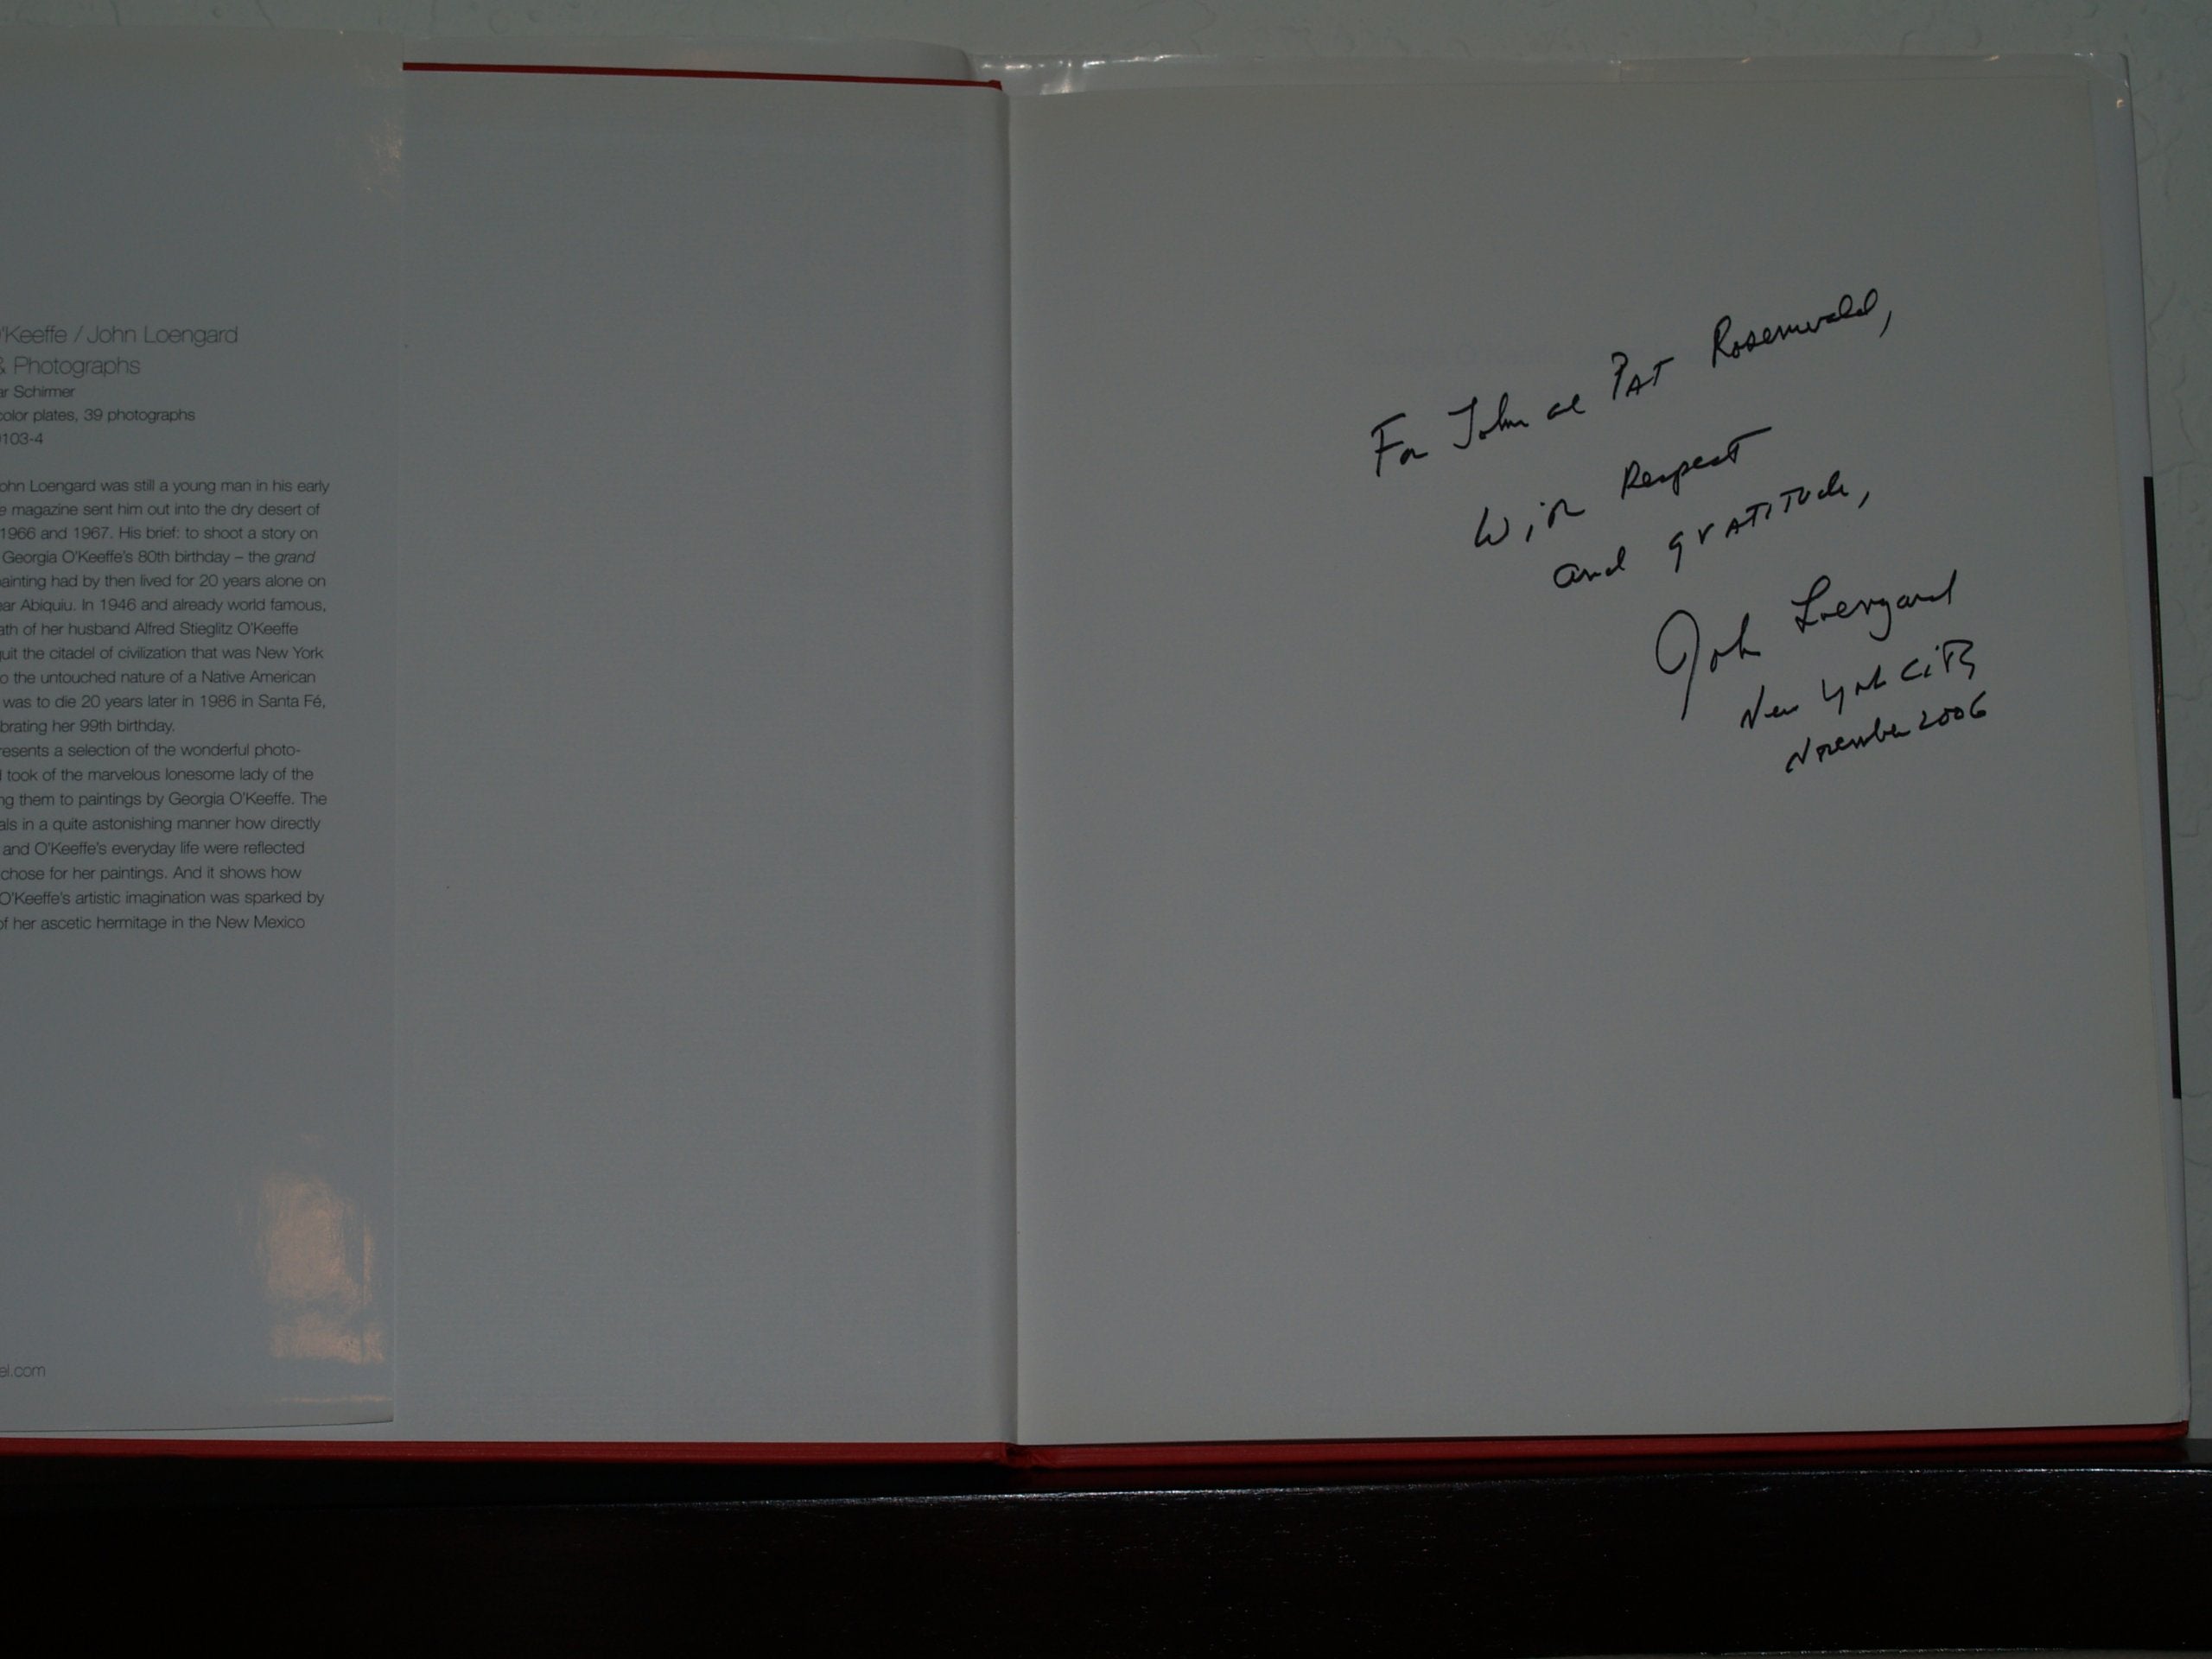 O'Keeffe / John Loengard
& Photographs
ar Schirmer
color plates, 39 photographs
103-4
ohn Loengard was still a young man in his early
e magazine sent him out into the dry desert of
1966 and 1967. His brief: to shoot a story on
Georgia O'Keeffe's 80th birthday – the grand
ainting had by then lived for 20 years alone on
ar Abiquiu. In 1946 and already world famous,
ath of her husband Alfred Stieglitz O'Keeffe
uit the citadel of civilization that was New York
o the untouched nature of a Native American
was to die 20 years later in 1986 in Santa Fé,
brating her 99th birthday.
resents a selection of the wonderful photo-
took of the marvelous lonesome lady of the
ng them to paintings by Georgia O'Keeffe. The
als in a quite astonishing manner how directly
and O'Keeffe's everyday life were reflected
chose for her paintings. And it shows how
O'Keeffe's artistic imagination was sparked by
of her ascetic hermitage in the New Mexico
el.com
For John and Pat Rosenwald,
With Respect
and gratitude,
John Loengard
New York City
November 2006